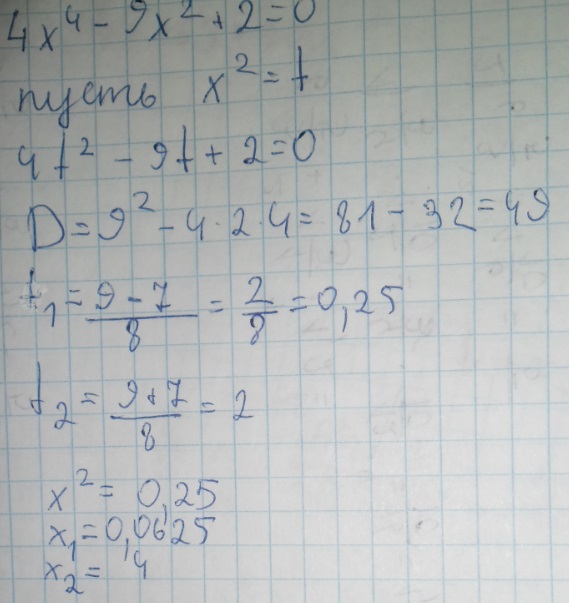 4x⁴ - 9x² + 2 = 0
пусть x² = t
4t² - 9t + 2 = 0
D = 9² - 4·2·4 = 81 - 32 = 49
t₁ = (9 - 7)/8 = 2/8 = 0,25
t₂ = (9 + 7)/8 = 2
x² = 0,25
x₁ = 0,0625
x₂ = 4